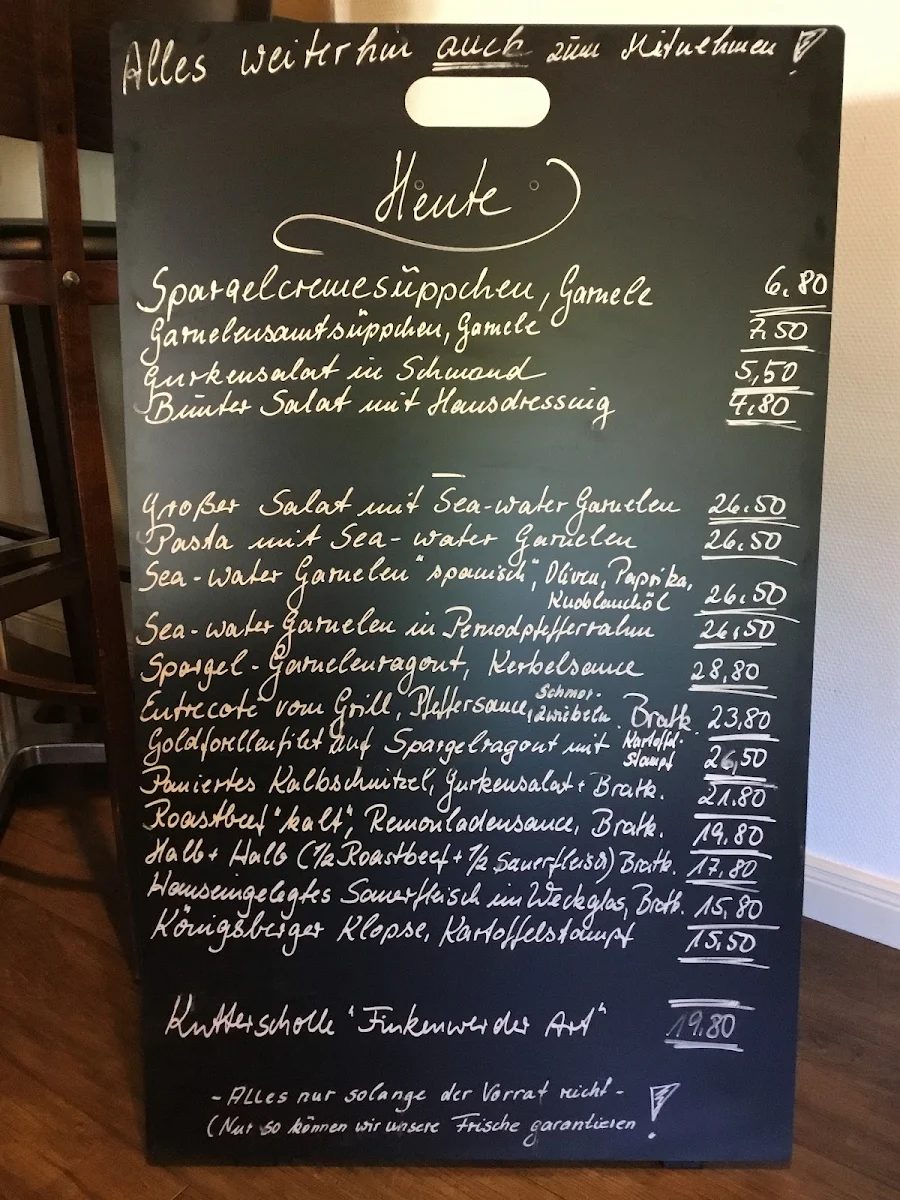 Alles weiterhin auch zum Mitnehmen !
Heute
Spargelcremesüppchen, Garnele 6,80
Garnelensamtsüppchen, Garnele 7,50
Gurkensalat in Schmand 5,50
Bunter Salat mit Hausdressing 4,80
Großer Salat mit Sea-water Garnelen 26,50
Pasta mit Sea-water Garnelen 26,50
Sea-water Garnelen "spanisch", Oliven, Paprika,
Knoblauchöl 26,50
Sea-water Garnelen in Pernodpfefferrahm 26,50
Spargel-Garnelenragout, Kerbelsauce 28,80
Entrecote vom Grill, Pfeffersauce, Schmor-zwiebeln, Bratk. 23,80
Goldforellenfilet auf Spargelragout mit Kartoffel-stampf 26,50
Paniertes Kalbschnitzel, Gurkensalat + Bratk. 21.80
Roastbeef "kalt", Remouladensauce, Bratk. 19,80
Halb + Halb (1/2 Roastbeef + 1/2 Sauerfleisch) Bratk. 17,80
Hauseingelegtes Sauerfleisch im Weckglas, Bratk. 15,80
Königsberger Klopse, Kartoffelstampf 15,50
Kutterscholle "Finkenwerder Art" 19.80
- Alles nur solange der Vorrat reicht -
(Nur so können wir unsere Frische garantieren !